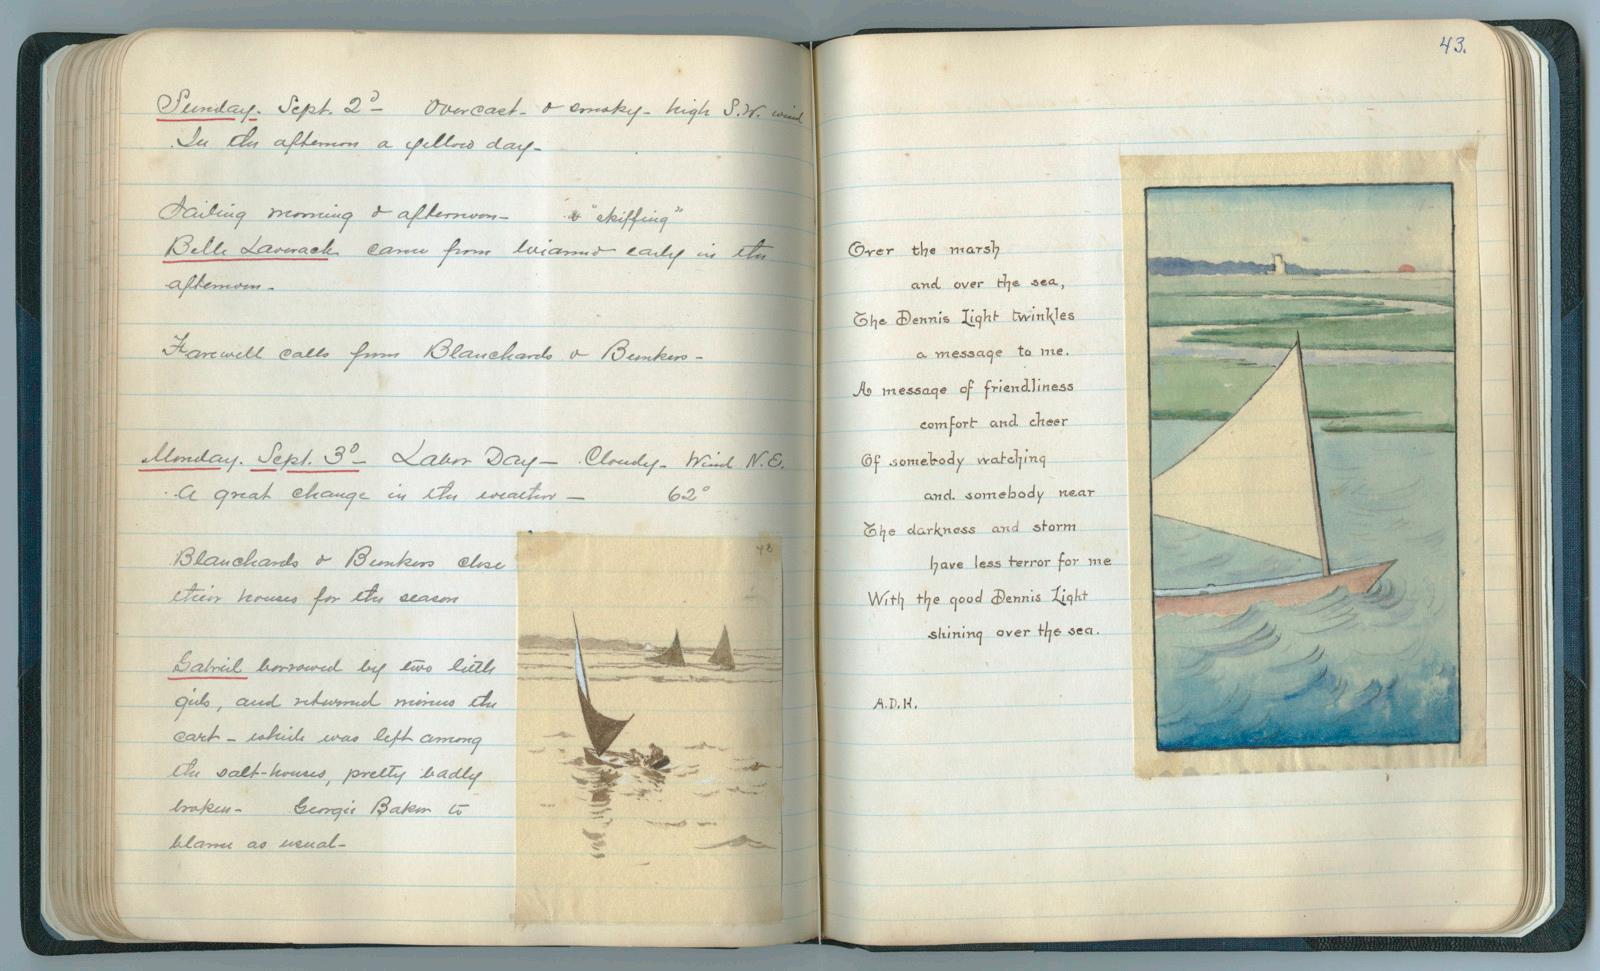 Sunday. Sept. 2ᴰ – Overcast – & smoky – high S.W. wind
In the afternoon a yellow day –
Sailing morning & afternoon – & "skiffing"
Belle Lavorack came from Wianno early in the
afternoon –
Farewell calls from Blanchards & Bunkers –
Monday. Sept. 3ᴰ – Labor Day – Cloudy – Wind N.E.
A great change in the weather – 62°
Blanchards & Bunkers close
their houses for the season
Gabriel borrowed by two little
girls, and returned minus the
cart – which was left among
the salt-houses, pretty badly
broken – Georgie Baker to
blame as usual –
48
43.
Over the marsh
and over the sea,
The Dennis Light twinkles
a message to me.
A message of friendliness
comfort and cheer
Of somebody watching
and somebody near
The darkness and storm
have less terror for me
With the good Dennis Light
shining over the sea.
A.D.H.